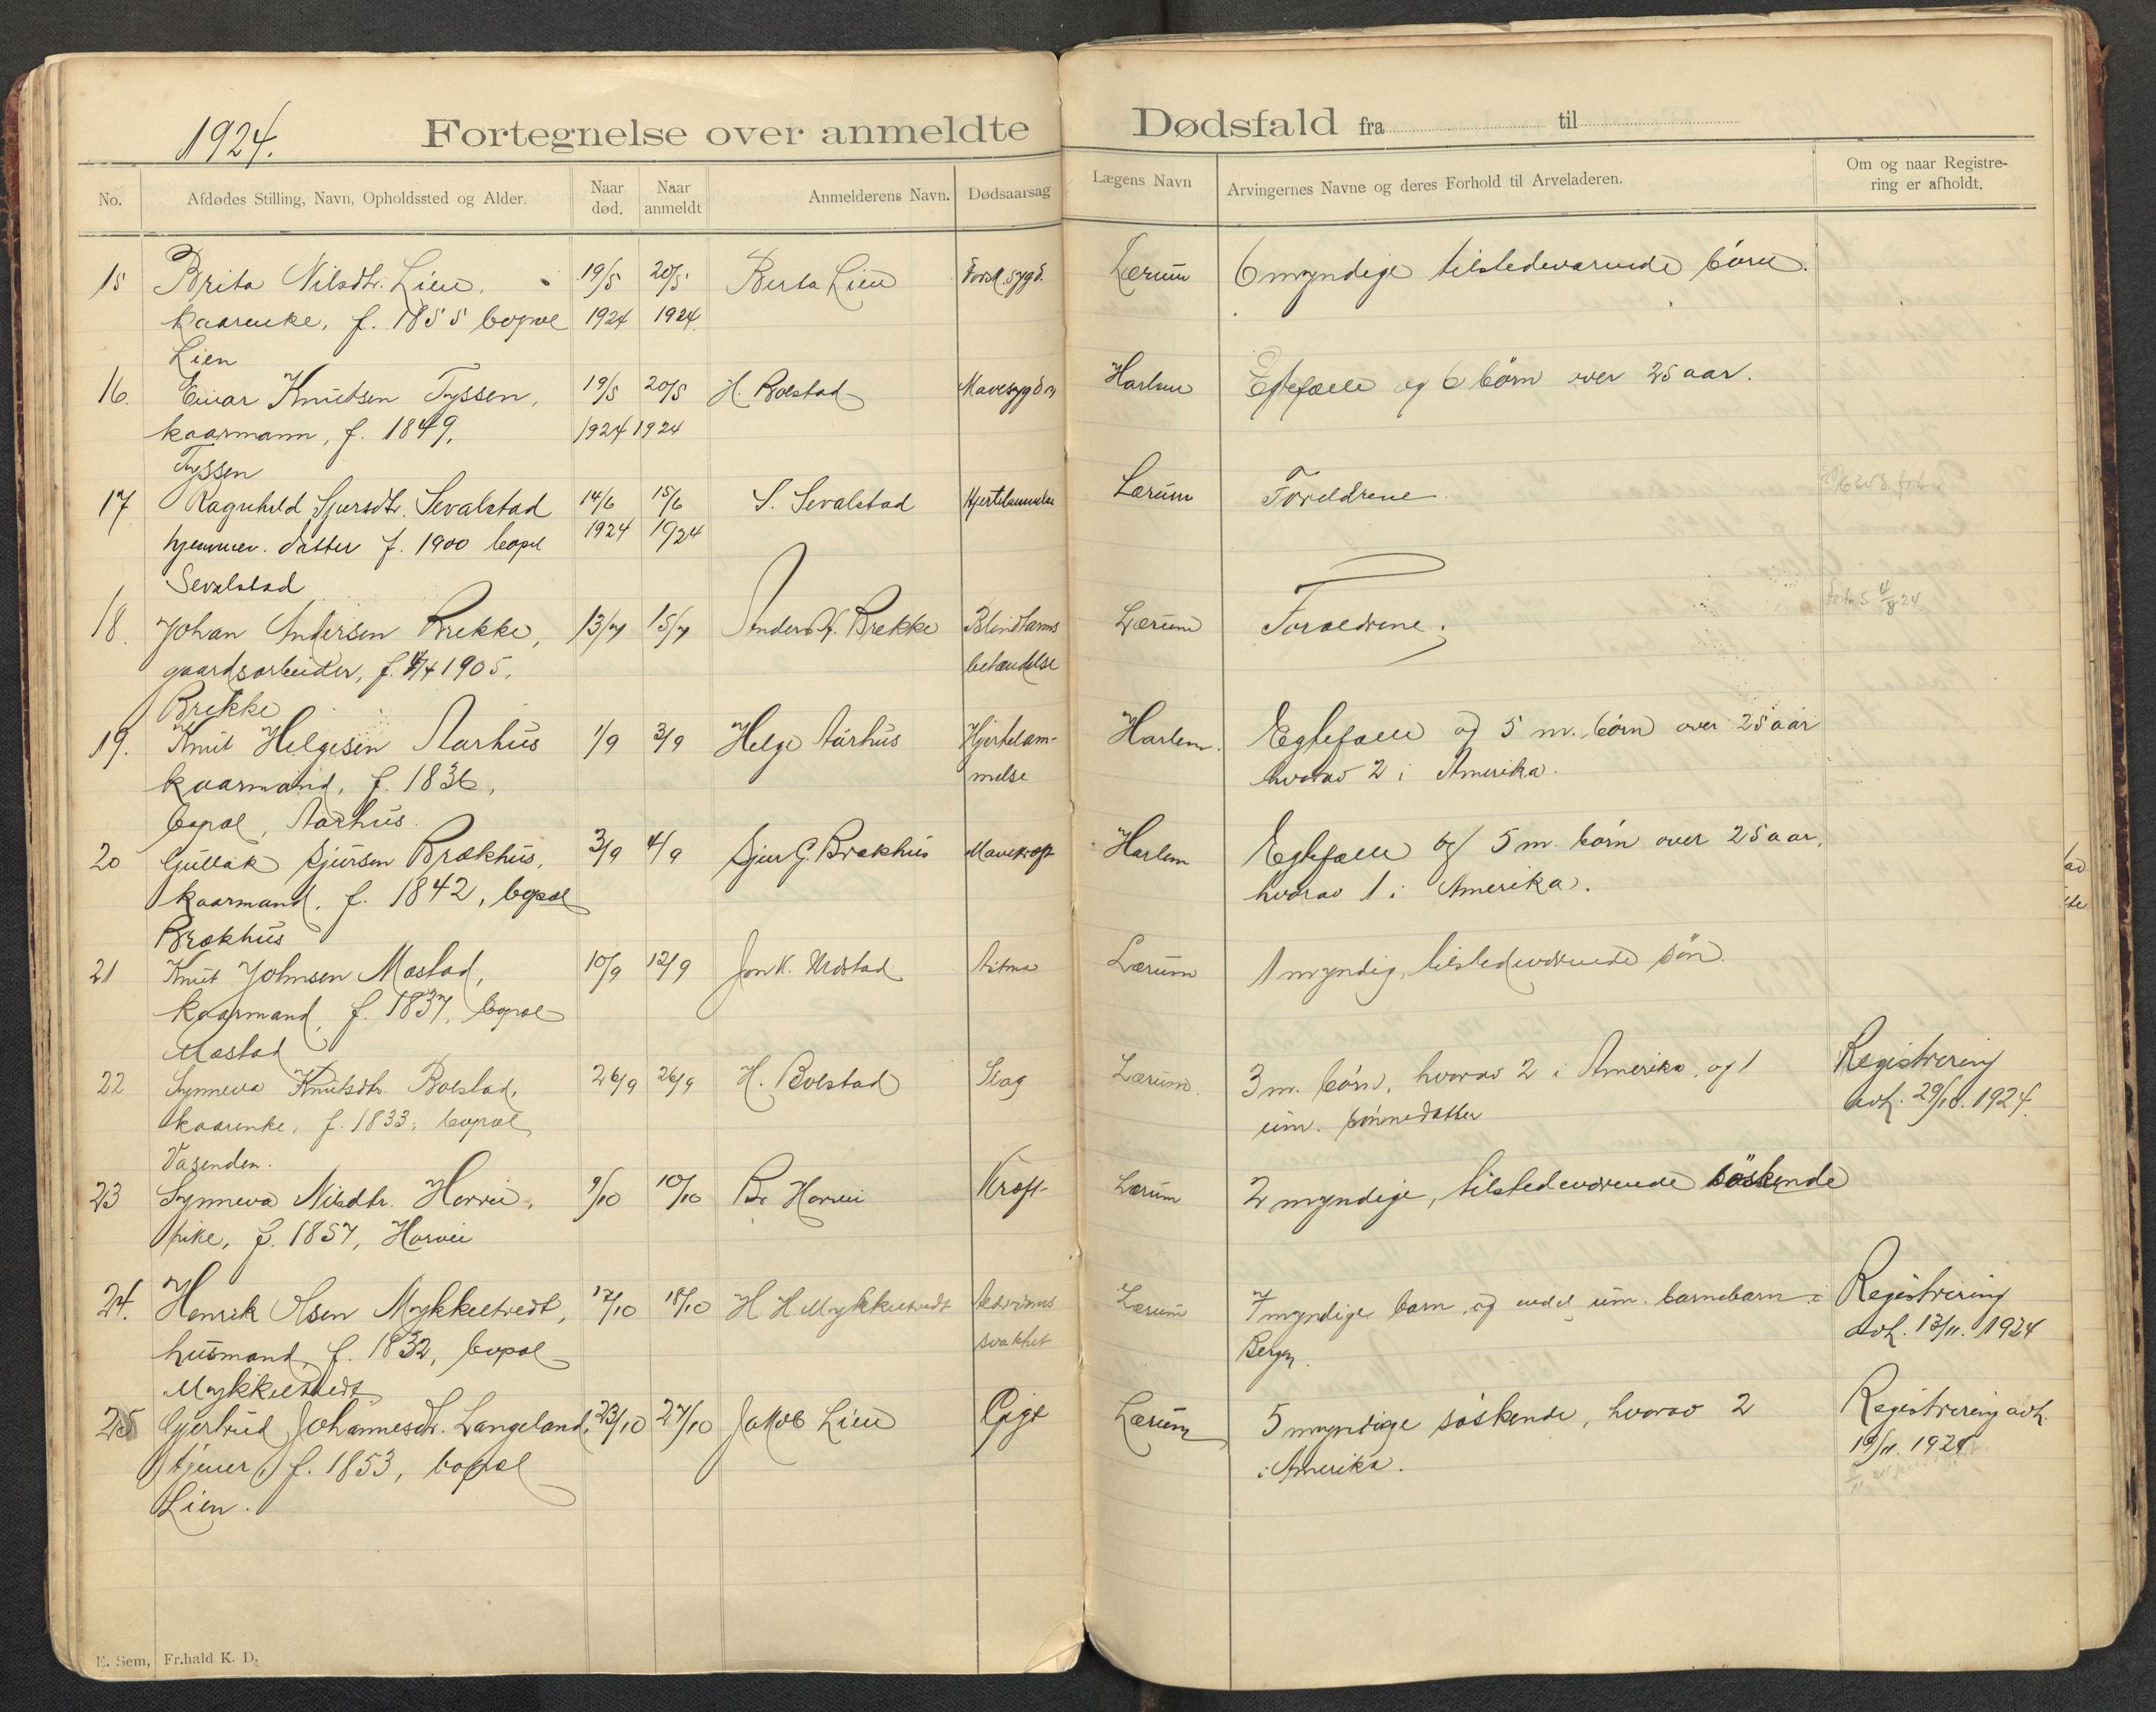 1924.
Fortegnelse over anmeldte Dødsfald fra til
No.
Afdødes Stilling, Navn, Opholdssted og Alder.
Naar død.
Naar anmeldt
Anmelderens Navn.
Dødsaarsag
Lægens Navn
Arvingernes Navne og deres Forhold til Arveladeren.
Om og naar Registrering er afholdt.
15 Brita Nilsdtr. Lien, 19/5 20/5 Berta Lien Lærum 6 myndige tilstedeværende børn.
kaarenke, f. 1855 bopæl 1924 1924
Lien
16. Einar Knutsen Tyssen, 19/5 20/5 H. Bolstad Mavesygdom Harlem Egtefælle og 6 børn over 25 aar.
kaarmann, f. 1849, 1924 1924
Tyssen
17 Ragnhild Sjursdtr. Sevalstad 14/6 15/6 S. Sevalstad Hjertelammelse Lærum Forældrene
hjemmev. datter f. 1900 bopæl 1924 1924
Sevalstad
18. Johan Andersen Brekke, 13/7 15/7 Anders Brekke Blindtarms Lærum Forældrene.
gaardsarbeider, f. 4/4 1905, betændelse
Brekke
19. Knut Helgesen Aarhus 1/9 3/9 Helge Aarhus Hjertelam- Harlem. Egtefælle og 5 m. børn over 25 aar
kaarmand, f. 1836, melse hvorav 2 i Amerika.
bopæl, Aarhus.
20 Gullak Sjursen Brækhus, 3/9 4/9 Sjur G. Brækhus Mavekræft Harlem Egtefælle og 5 m. børn over 25 aar,
kaarmand, f. 1842, bopæl hvorav 1 i Amerika.
Brækhus
21 Knut Johnsen Mæstad, 10/9 12/9 Jon K. Mæstad Astma Lærum 1 myndig, tilstedeværende søn.
kaarmand, f. 1837, bopæl
Mæstad
22 Synneva Knutsdtr. Bolstad, 26/9 26/9 H. Bolstad Slag Lærum. 3 m. børn, hvorav 2 i Amerika, og 1 Registrering
kaarenke, f. 1833, bopæl um. sønnedatter avh. 29/10. 1924.
Vasenden.
23 Synneva Nilsdtr. Horvei, 9/10 10/10 Br. Horvei Kræft Lærum 2 myndige, tilstedeværende søskende
pike, f. 1857, Horvei
24. Henrik Olsen Mykkeltvedt, 17/10 18/10 H H Mykkeltvedt Alderdoms Lærum 7 myndige barn og endel um. barnebarn i Registrering
husmand, f. 1832, bopæl svakhet Bergen. avh. 13/11. 1924
Mykkeltvedt
25 Gjertrud Johannesdtr. Langeland, 23/10 27/10 Jakob Lien Gigt Lærum 5 myndige søskende, hvorav 2 Registrering avh.
tjener, f. 1853, bopæl i Amerika. 1924
Lien.
E. Sem, Fr.hald K. D.